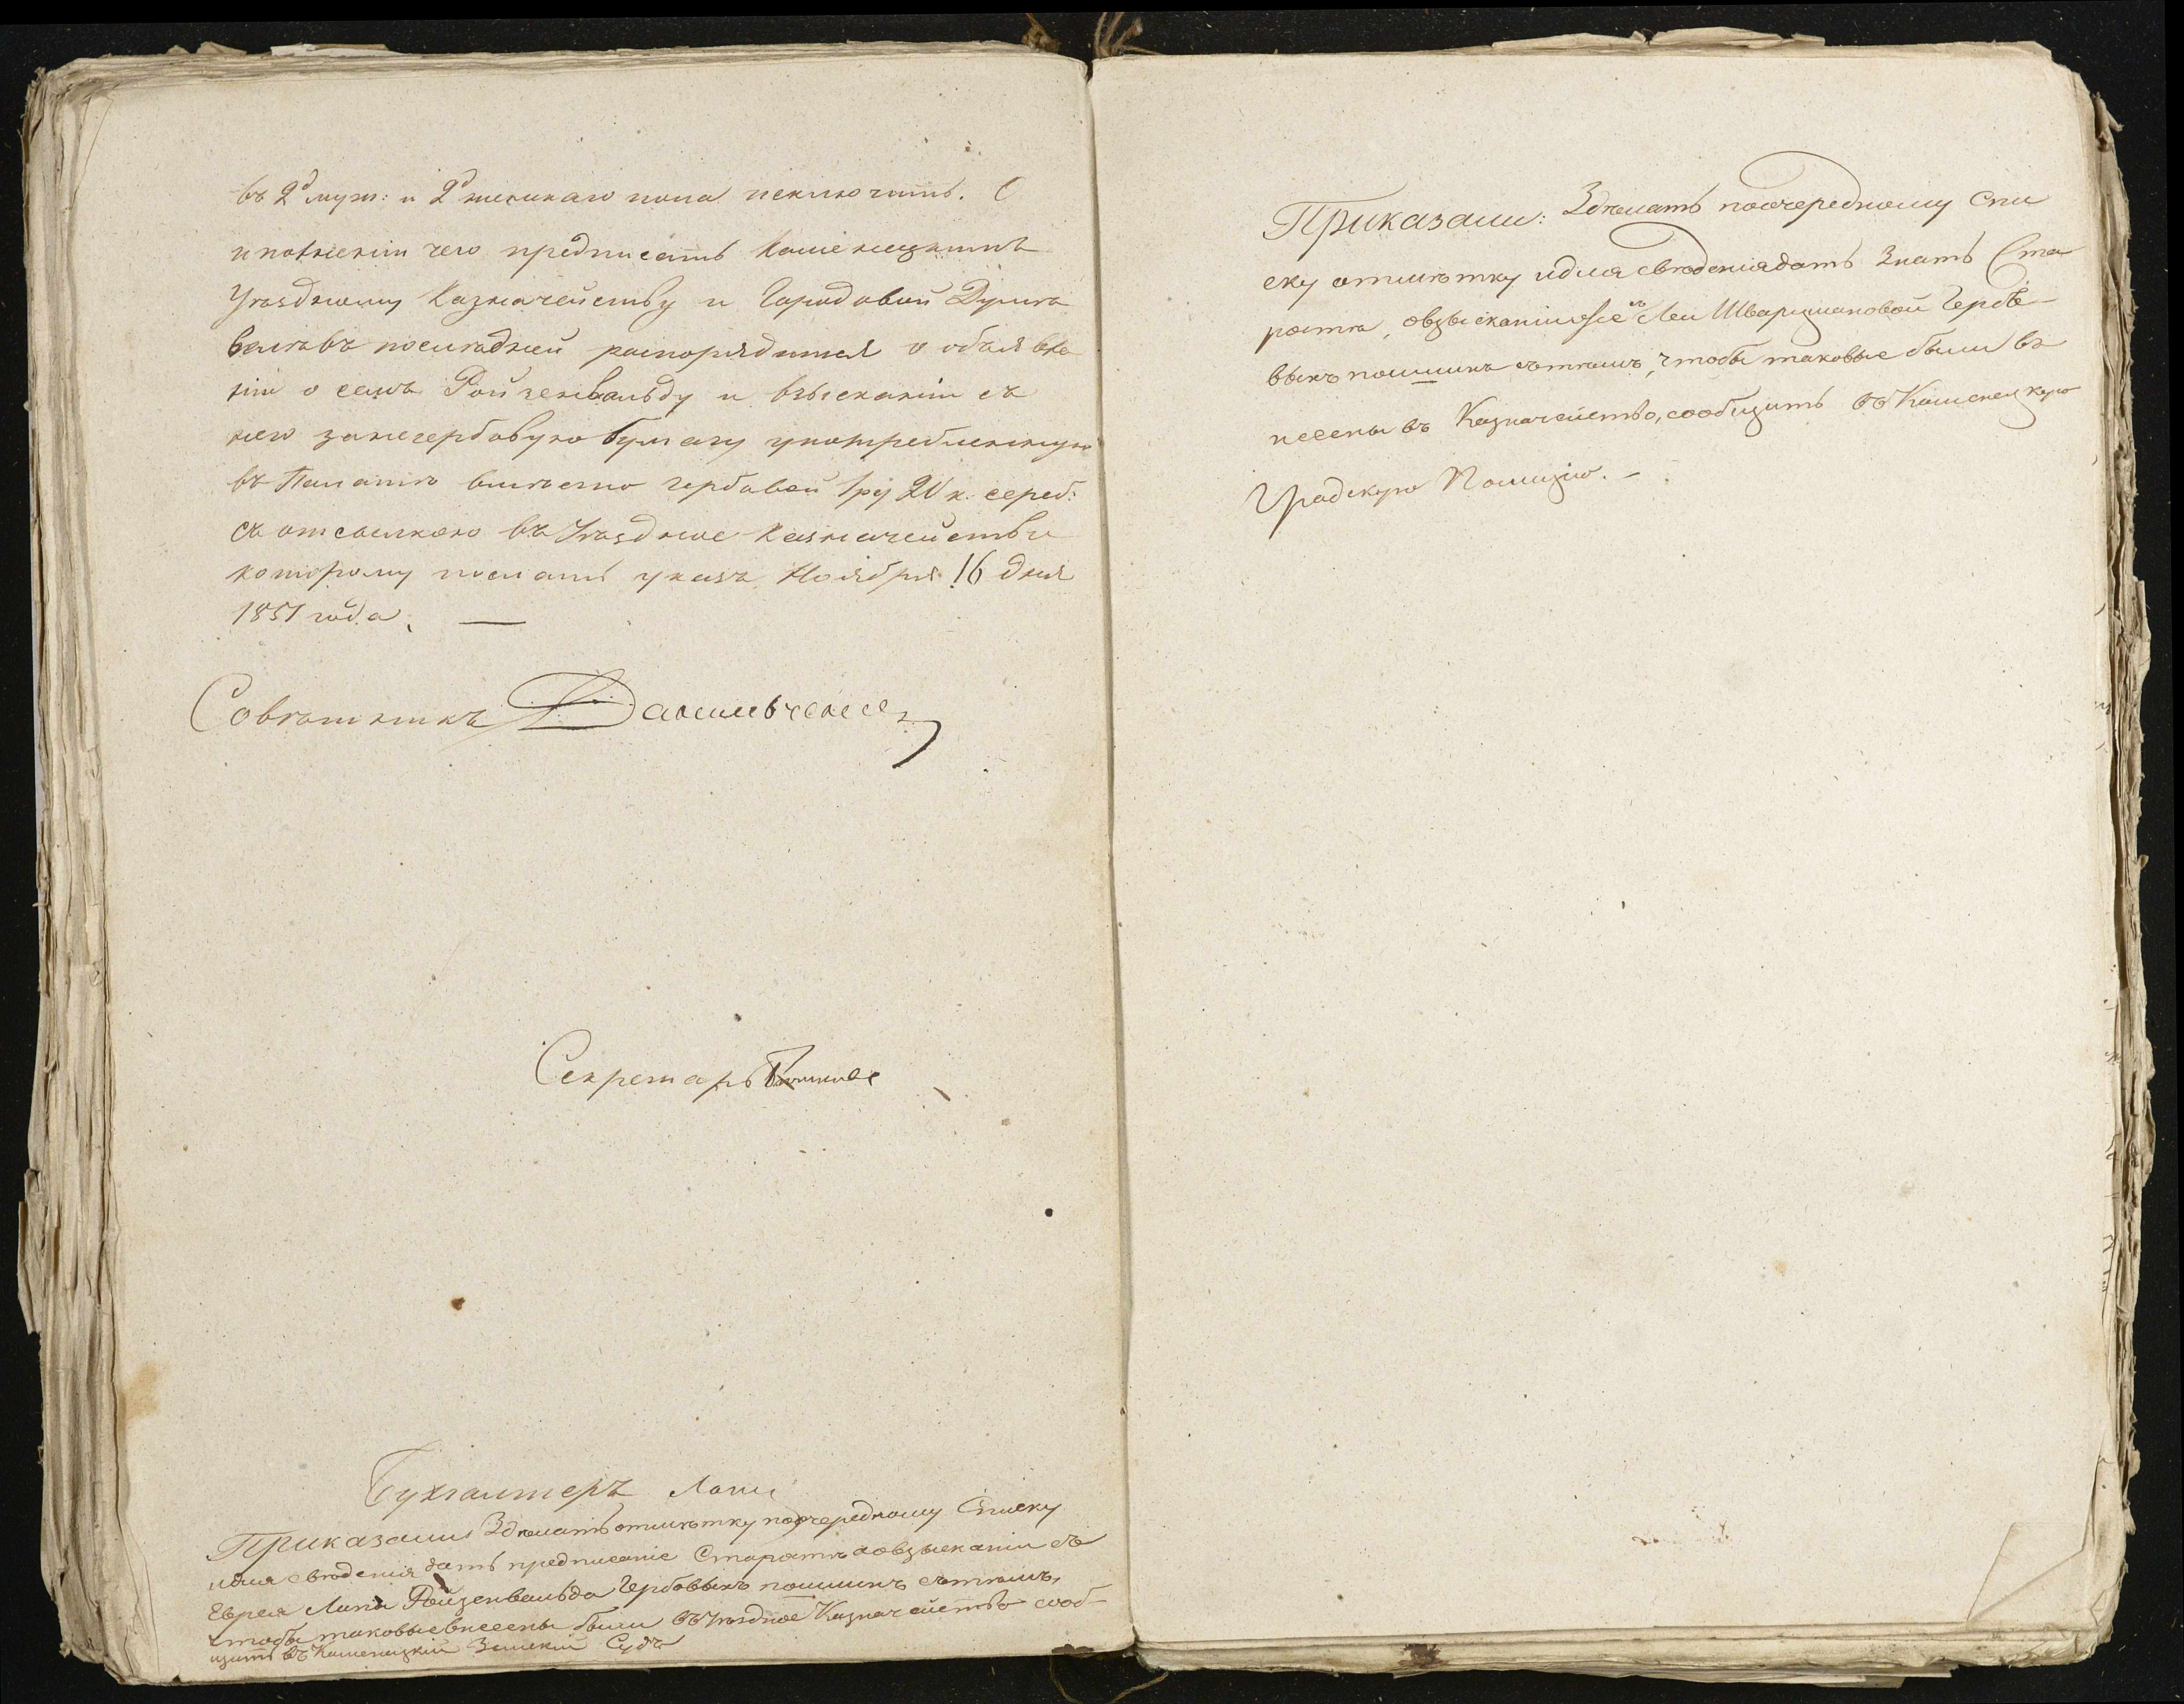 въ 2д муж: и 2д женскаго пола исключить. О
исполнении чего предписать Каменецкимъ
Уѣздному Казначейству и Городовой Думѣ
велѣвъ послѣдней распорядится о объявле
ніи о семъ Ройзенвальду и взысканіи съ
него за негербовую бумагу употребленную
въ Палатѣ вмѣсто гербовой 1 ру 20 к. сереб:
съ отсылкою въ Уѣздное Казначейство
которому послать указъ Ноября 16 дня
1851 года. —
Совѣтникъ Данильченко
Секретарь
Бухгалтеръ
Приказали Здѣлать отмѣтку по очередному Списку
и для свѣдения дать предписаніе Старостѣ а о взысканіи съ
Еврея Липы Ройзенвальда Гербовыхъ пошлинъ съ тѣмъ,
чтобы таковые внесены были въ Уѣздное Казначейство сооб-
щить въ Каменецкій Земскій Судъ
Приказали: Здѣлать по очередному Спи
ску отмѣтку и для свѣдения дать Знать Ста
ростѣ, о взысканіи же съ Леи Шварцмановой Гербо-
выхъ пошлинъ съ тѣмъ, чтобы таковые были вз
несены въ Казначейство, сообщить въ Каменецкую
Градскую Полицію. —